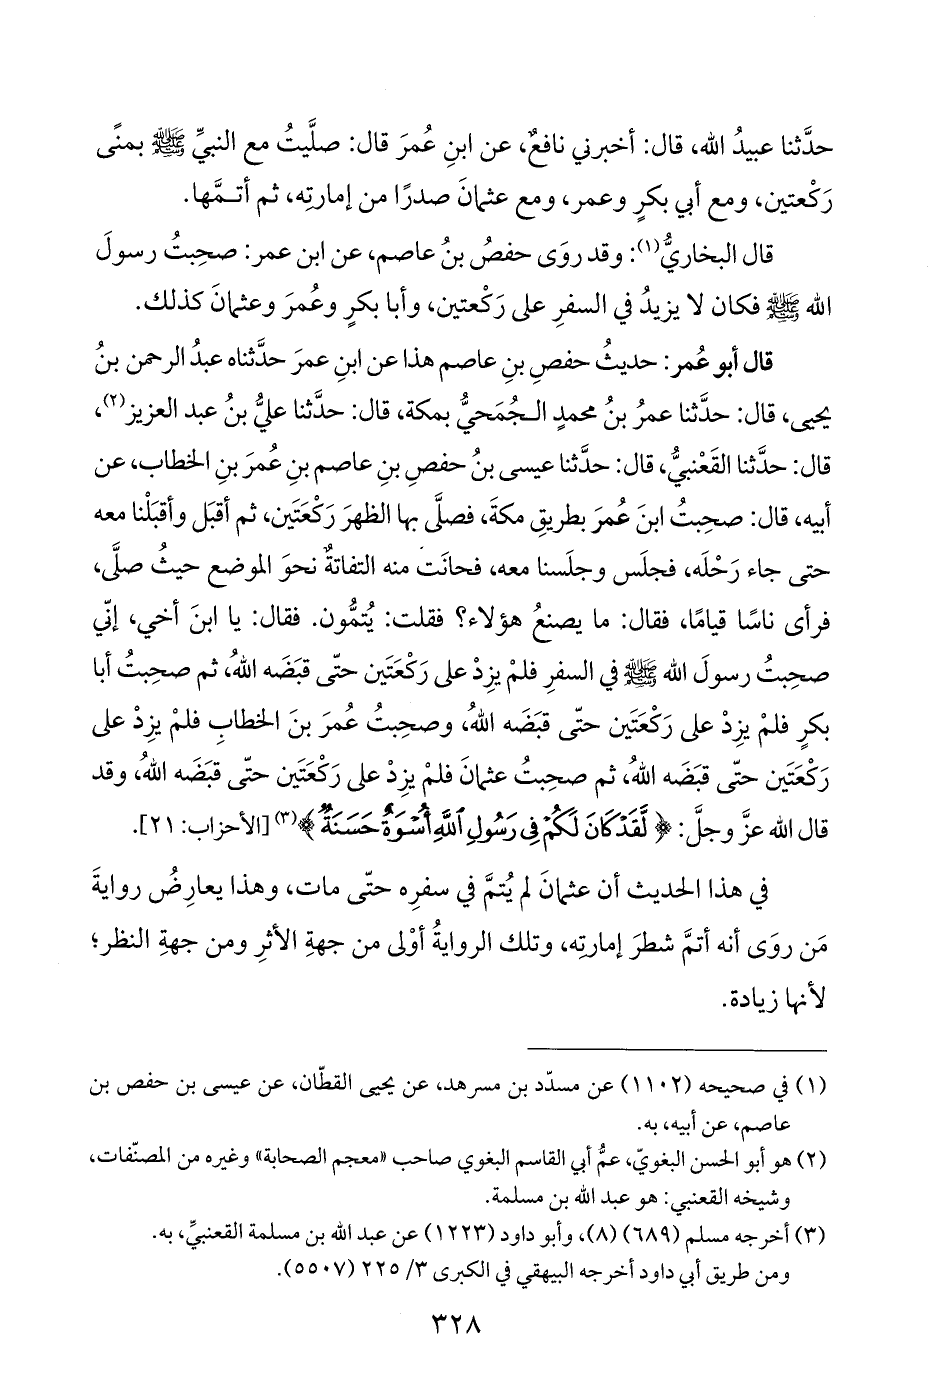 حدَّثنا عبيدُ الله، قال: أخبرني نافعٌ، عن ابنِ عُمرَ قال: صلَّيتُ مع النبيِّ ﷺ بمنًى
رَكْعتين، ومع أبي بكرٍ وعمر، ومع عثمانَ صدرًا من إمارتِه، ثم أتـمَّها.
قال البخاريُّ(١): وقد روَى حفصُ بنُ عاصم، عن ابن عمر: صحِبتُ رسولَ
الله ﷺ فكان لا يزيدُ في السفرِ على رَكْعتين، وأبا بكرٍ وعُمرَ وعثمانَ كذلك.
قال أبو عُمر: حديثُ حفصِ بنِ عاصم هذا عن ابنِ عمرَ حدَّثناه عبدُ الرحمن بنُ
يحيى، قال: حدَّثنا عمرُ بنُ محمدٍ الـجُمَحيُّ بمكة، قال: حدَّثنا عليُّ بنُ عبد العزيز(٢)،
قال: حدَّثنا القَعْنبيُّ، قال: حدَّثنا عيسى بنُ حفصِ بنِ عاصم بنِ عُمرَ بنِ الخطاب، عن
أبيه، قال: صحِبتُ ابنَ عُمرَ بطريقِ مكةَ، فصلَّى بها الظهرَ رَكْعَتَين، ثم أقبَل وأقبَلْنا معه
حتى جاء رَحْلَه، فجلَس وجلَسنا معه، فحانَت منه التفاتةٌ نحوَ الموضع حيثُ صلَّى،
فرأى ناسًا قيامًا، فقال: ما يصنعُ هؤلاء؟ فقلت: يُتمُّون. فقال: يا ابنَ أخي، إنّي
صحِبتُ رسولَ الله ﷺ في السفرِ فلمْ يزِدْ على رَكْعَتَين حتّى قبَضَه اللهُ، ثم صحِبتُ أبا
بكرٍ فلمْ يزِدْ على رَكْعَتَين حتّى قبَضَه اللهُ، وصحِبتُ عُمرَ بنَ الخطابِ فلمْ يزِدْ على
رَكْعَتَين حتّى قبَضَه اللهُ، ثم صحِبتُ عثمانَ فلمْ يزِدْ على رَكْعَتَين حتّى قبَضَه اللهُ، وقد
قال الله عزَّ وجلَّ: ﴿ لَّقَدْ كَانَ لَكُمْ فِي رَسُولِ ٱللَّهِ أُسْوَةٌ حَسَنَةٌ ﴾(٣) [الأحزاب: ٢١].
في هذا الحديث أن عثمانَ لم يُتمَّ في سفرِه حتّى مات، وهذا يعارِضُ روايةَ
مَن روَى أنه أتمَّ شطرَ إمارتِه، وتلك الروايةُ أوْلى من جهةِ الأثرِ ومن جهةِ النظر؛
لأنها زيادة.
(١) في صحيحه (١١٠٢) عن مسدّد بن مسرهد، عن يحيى القطّان، عن عيسى بن حفص بن
عاصم، عن أبيه، به.
(٢) هو أبو الحسن البغويّ، عمُّ أبي القاسم البغوي صاحب «معجم الصحابة» وغيره من المصنّفات،
وشيخه القعنبي: هو عبد الله بن مسلمة.
(٣) أخرجه مسلم (٦٨٩) (٨)، وأبو داود (١٢٢٣) عن عبد الله بن مسلمة القعنبيِّ، به.
ومن طريق أبي داود أخرجه البيهقي في الكبرى ٣/ ٢٢٥ (٥٥٠٧).
٣٢٨